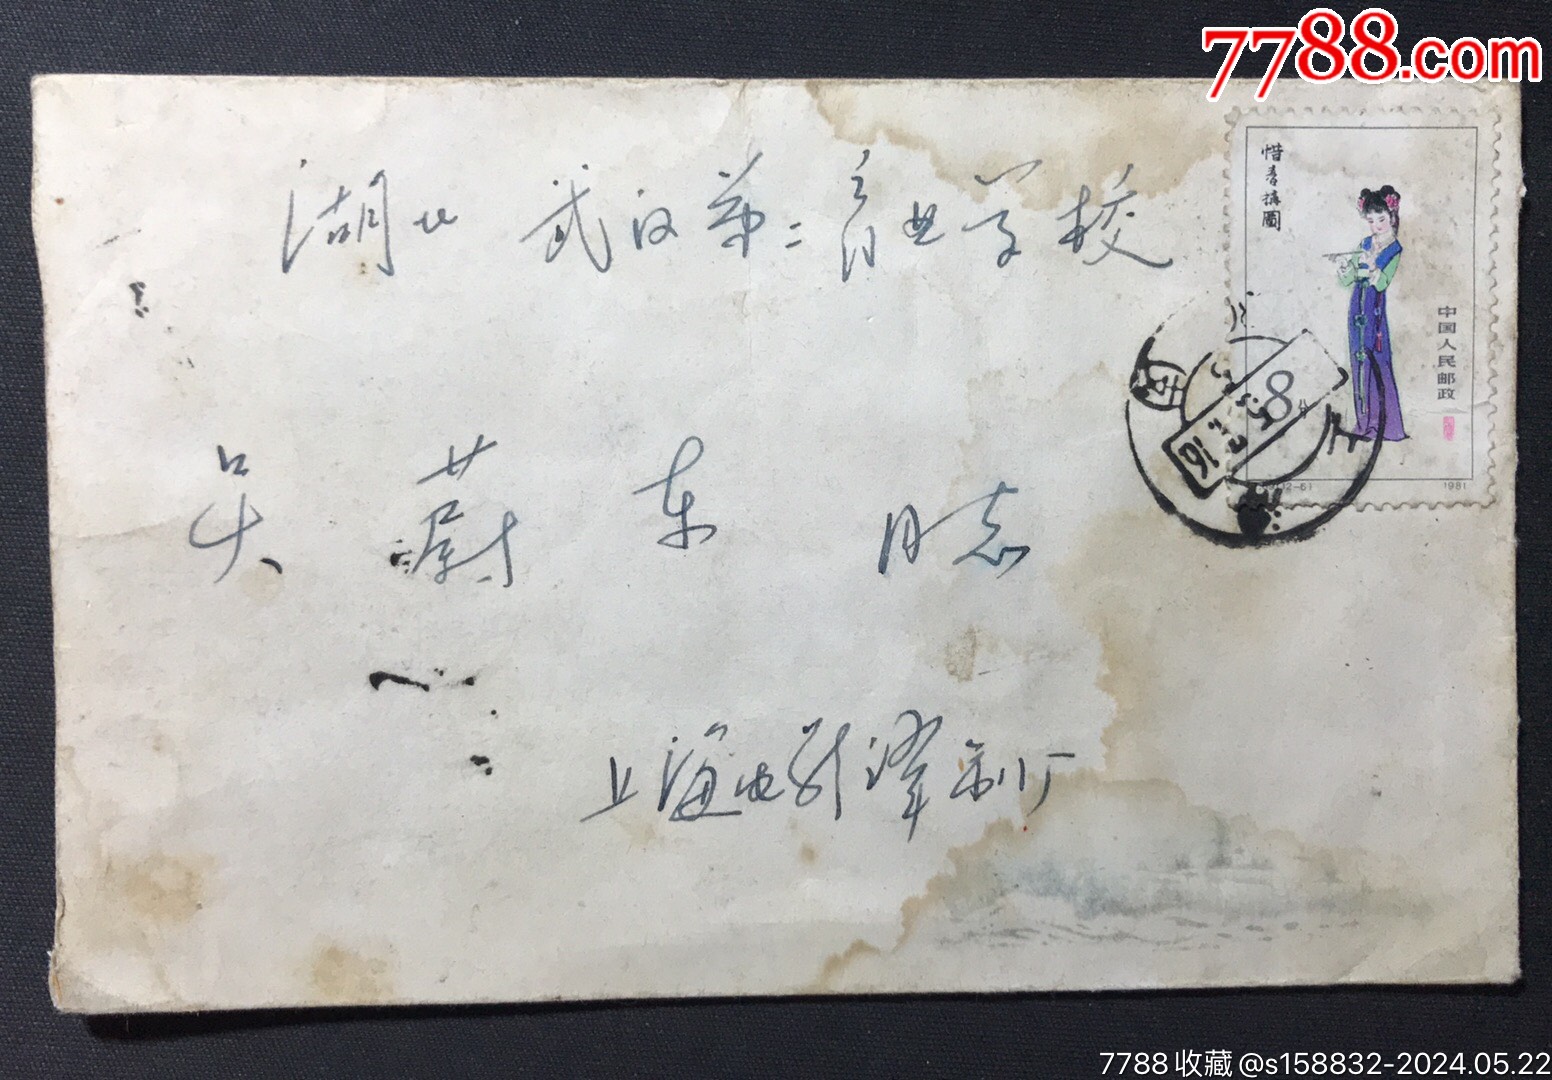 7788.com
湖北 武汉第二商业学校
惜春搆圖
中国人民邮政
8分
1981
吴 蔚 东 同志
上海电影译制厂
7788收藏@s158832-2024.05.22